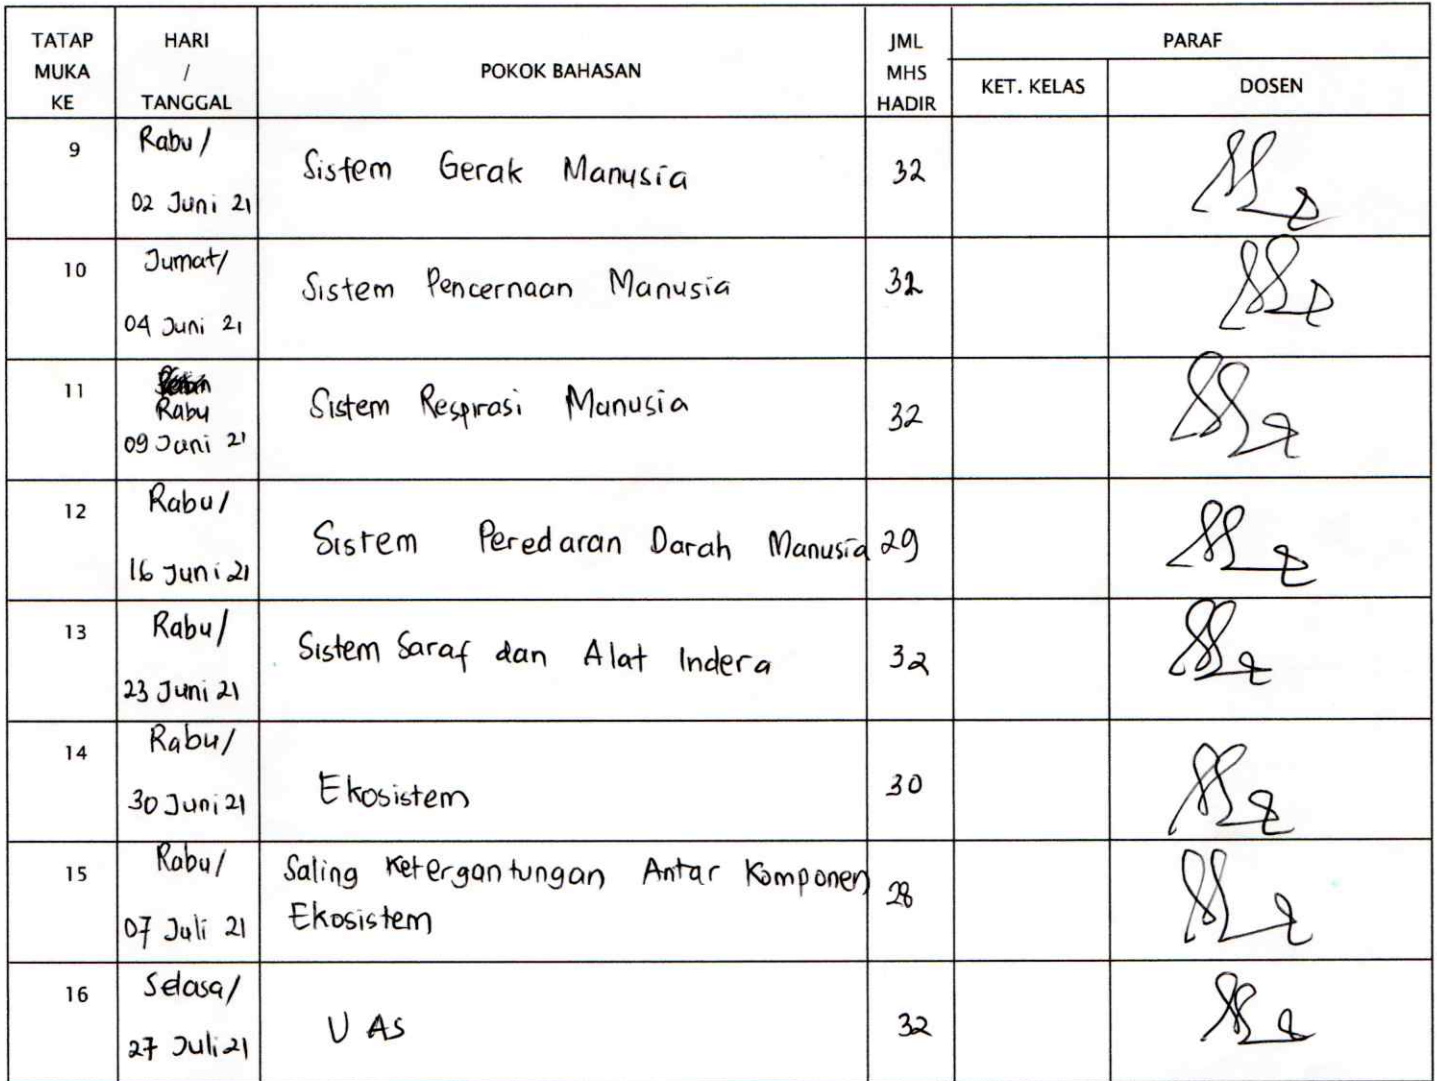 TATAP MUKA KE HARI / TANGGAL POKOK BAHASAN JML MHS HADIR PARAF
KET. KELAS DOSEN
9 Rabu / 02 Juni 21 Sistem Gerak Manusia 32
10 Jumat/ 04 Juni 21 Sistem Pencernaan Manusia 32
11 Rabu 09 Juni 21 Sistem Respirasi Manusia 32
12 Rabu/ 16 Juni 21 Sistem Peredaran Darah Manusia 29
13 Rabu/ 23 Juni 21 Sistem Saraf dan Alat Indera 32
14 Rabu/ 30 Juni 21 Ekosistem 30
15 Rabu/ 07 Juli 21 Saling Ketergantungan Antar Komponen Ekosistem 28
16 Selasa/ 27 Juli 21 UAS 32